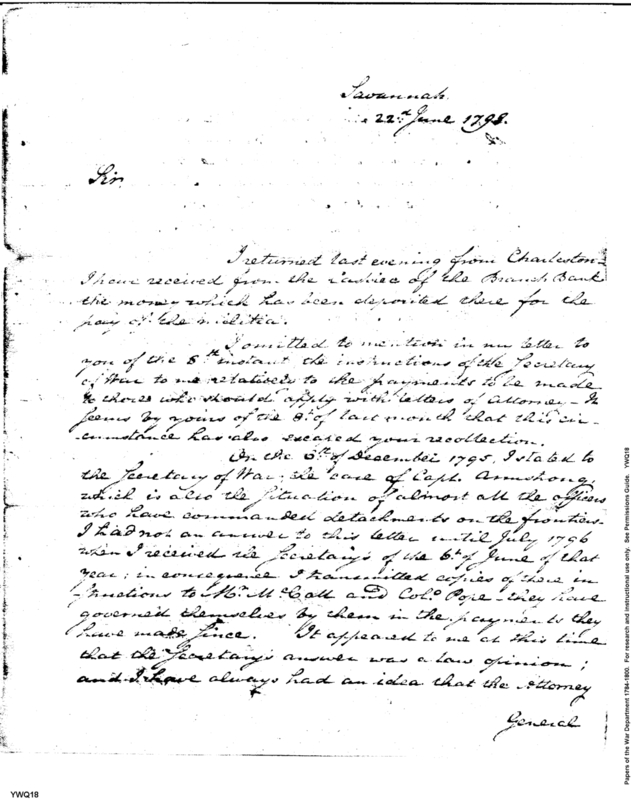 Savannah
22d. June 1798.
Sir
I returned last evening from Charleston
I have received from the Cashier of the Branch Bank
the money which has been deposited there for the
pay of the militia.
I omitted to mention in my letter to
you of the 5th instant the instructions of the Secretary
of War to me relatively to the payments to be made
to those who should apply with letters of Attorney – It
seems by yours of the 8th of last month that this cir-
cumstance has also escaped your recollection.
On the 5th of December 1795, I stated to
the Secretary of War, the case of Capt. Armstrong
which is also the situation of almost all the officers
who have commanded detachments on the frontiers.
I had not an answer to this letter until July 1796
when I received the Secretary's of the 6th of June of that
year; in consequence I transmitted copies of these in
structions to Mr. McCall and Colo. Pope – they have
governed themselves by them in the payments they
have made since. It appeared to me at this time
that the Secretary's answer was a law opinion;
and I have always had an idea that the Attorney
General
Papers of the War Department 1784-1800. For research and instructional use only. See Permissions Guide. YWQ18
YWQ18